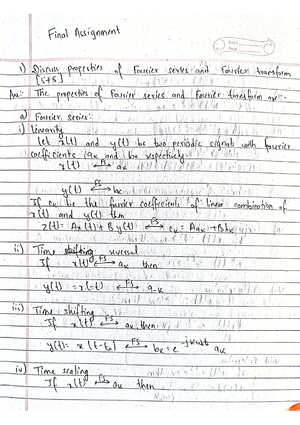 Final Assignment
1) Discuss properties of Fourier series and Fourier transform
[5+5]
Ans: The properties of Fourier series and Fourier transform are:-
a) Fourier series:
i) linearity
let x(t) and y(t) be two periodic signals with fourier
coefficients ak and bk respectively.
x(t) FS↔ ak
y(t) FS↔ bk
If ck be the fourier coefficients of linear combination of
x(t) and y(t) then
z(t) = Ax(t) + By(t) FS↔ ck = Aak + Bbk
ii) Time reversal
If x(t) FS↔ ak then
y(t) = x(-t) FS↔ a-k
iii) Time shifting
If x(t) FS↔ ak then
y(t) = x(t-t0) FS↔ bk = e ak
iv) Time scaling
If x(t) FS↔ ak then